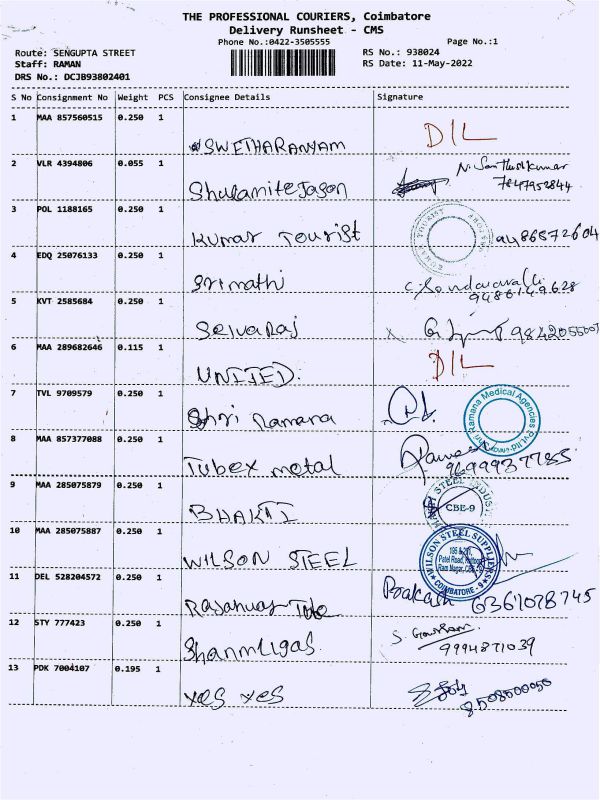 THE PROFESSIONAL COURIERS, Coimbatore
Delivery Runsheet - CMS
Phone No.:0422-3505555 Page No.:1
Route: SENGUPTA STREET RS No.: 938024
Staff: RAMAN RS Date: 11-May-2022
DRS No.: DCJB93802401
S No Consignment No Weight PCS Consignee Details Signature
1 MAA 857560515 0.250 1
SWETHARANYAM D/L
2 VLR 4394806 0.055 1 N. Santhoshkumar
Shulamite Jason 7847952844
3 POL 1188165 0.250 1
Kumar Tourist KUMAR TOURIST 9486572604
4 EDQ 25076133 0.250 1
Srimathi
9486149628
5 KVT 2585684 0.250 1
Selvaraj
6 MAA 289682646 0.115 1
UNITED. D/L
7 TVL 9709579 0.250 1
Shri Ramana Shri Ramana Medical Agencies Pvt.Ltd
8 MAA 857377088 0.250 1
Tubex metal
9 MAA 285075879 0.250 1
BHAKTI CBE-9
10 MAA 285075887 0.250 1
WILSON STEEL WILSON STEEL SUPPLIERS
Patel Road,
Ram Nagar,
COIMBATORE - 9
11 DEL 528204572 0.250 1 Prakash 6361078745
12 STY 777423 0.250 1
Shanmugas 9994871039
13 PDK 7004107 0.195 1
yes yes 8508500050